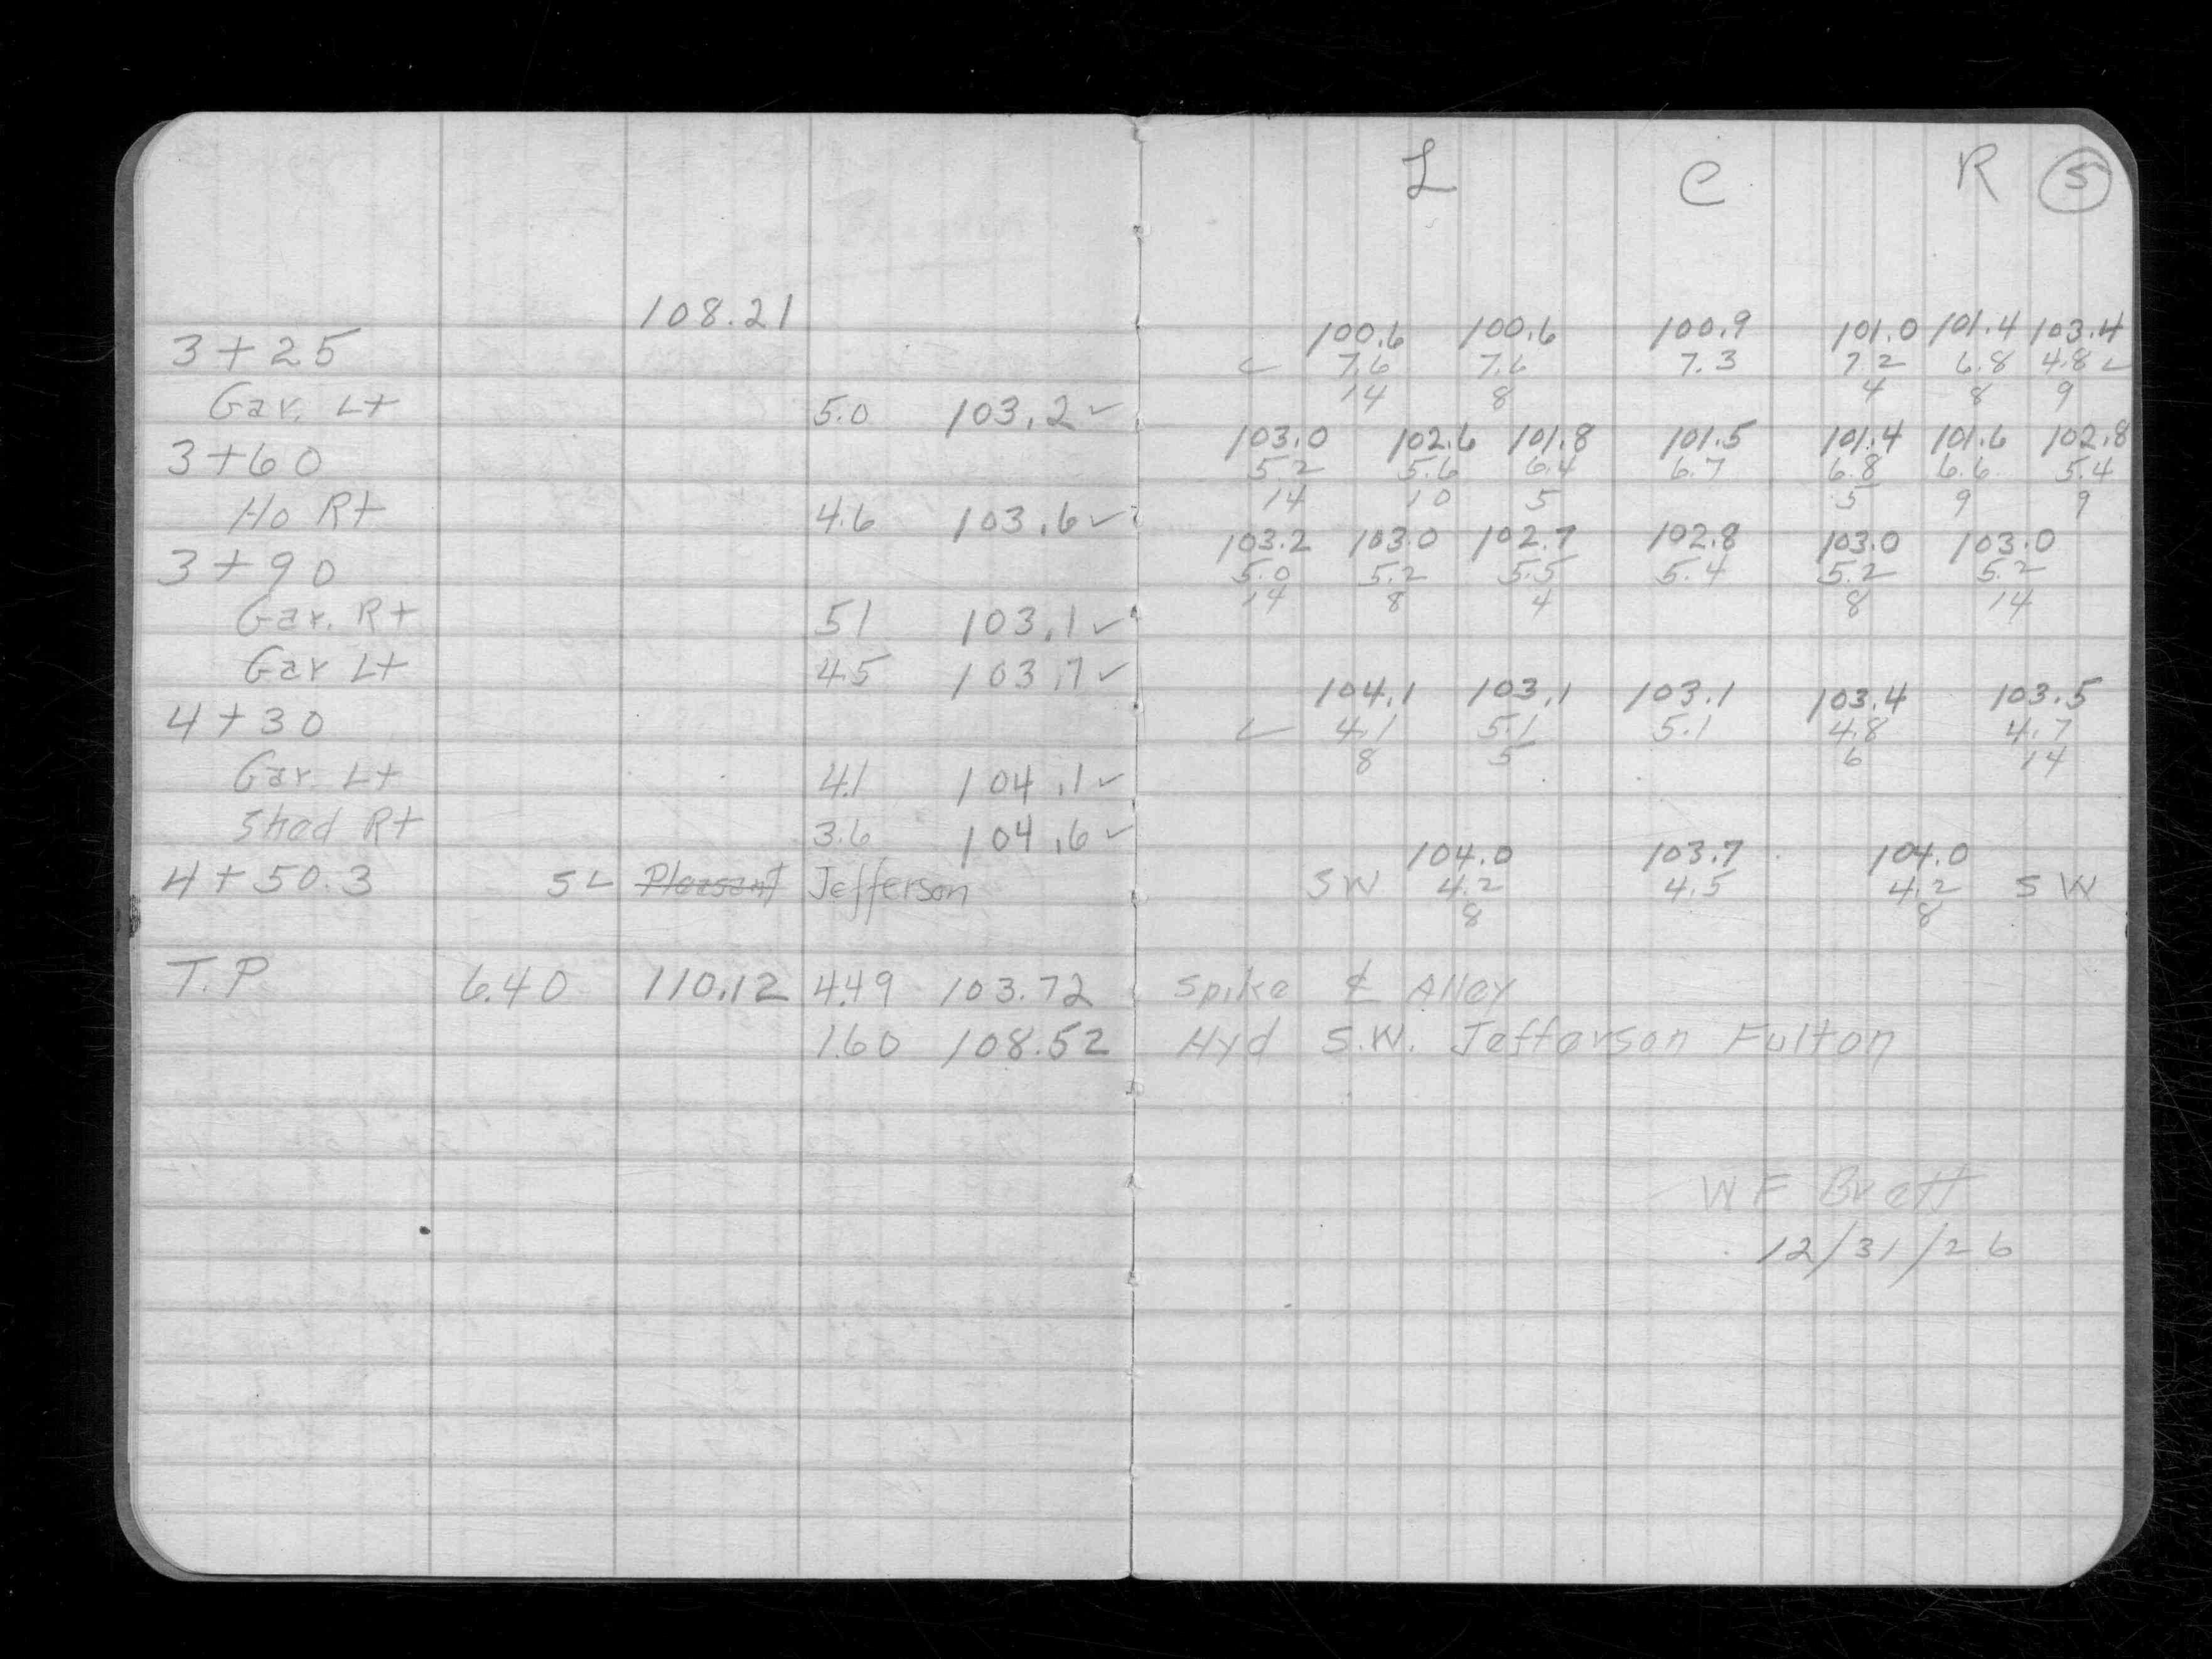 L C R 5
108.21
3+25
100.6 100.6 100.9 101.0 101.4 103.4
7.6 7.6 7.3 7.2 6.8 4.8
14 8 4 8 9
Gar. Lt 5.0 103.2 ✓
103.0 102.6 101.8 101.5 101.4 101.6 102.8
3+60
5.2 5.6 6.4 6.7 6.8 6.6 5.4
14 10 5 5 9 9
Ho Rt 4.6 103.6 ✓
103.2 103.0 102.7 102.8 103.0 103.0
3+90
5.0 5.2 5.5 5.4 5.2 5.2
14 8 4 8 14
Gar. Rt 5.1 103.1 ✓
Gar Lt 4.5 103.7 ✓
104.1 103.1 103.1 103.4 103.5
4+30
4.1 5.1 5.1 4.8 4.7
8 5 6 14
Gar. Lt 4.1 104.1 ✓
Shed Rt 3.6 104.6 ✓
104.0 103.7 104.0
4+50.3 SL Pleasant Jefferson
SW 4.2 4.5 4.2 SW
8 8
T.P 6.40 110.12 4.49 103.72 Spike ⅊ Alley
1.60 108.52 Hyd S.W. Jefferson Fulton
W F Brett
12/31/26